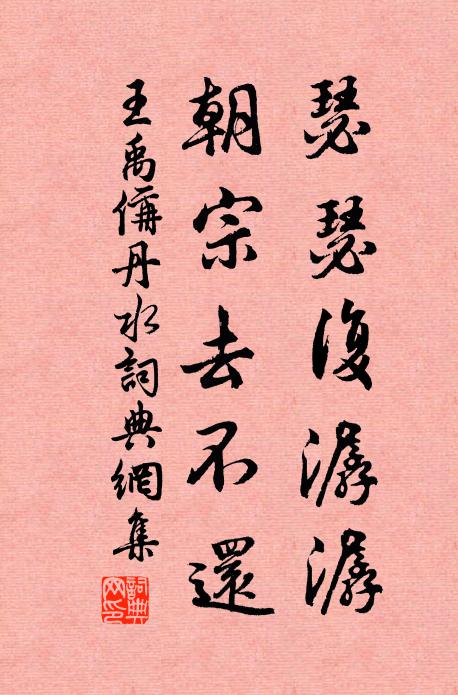 瑟瑟復潺潺
朝宗去不還
王禹偁丹水詞典網集
詞典网印